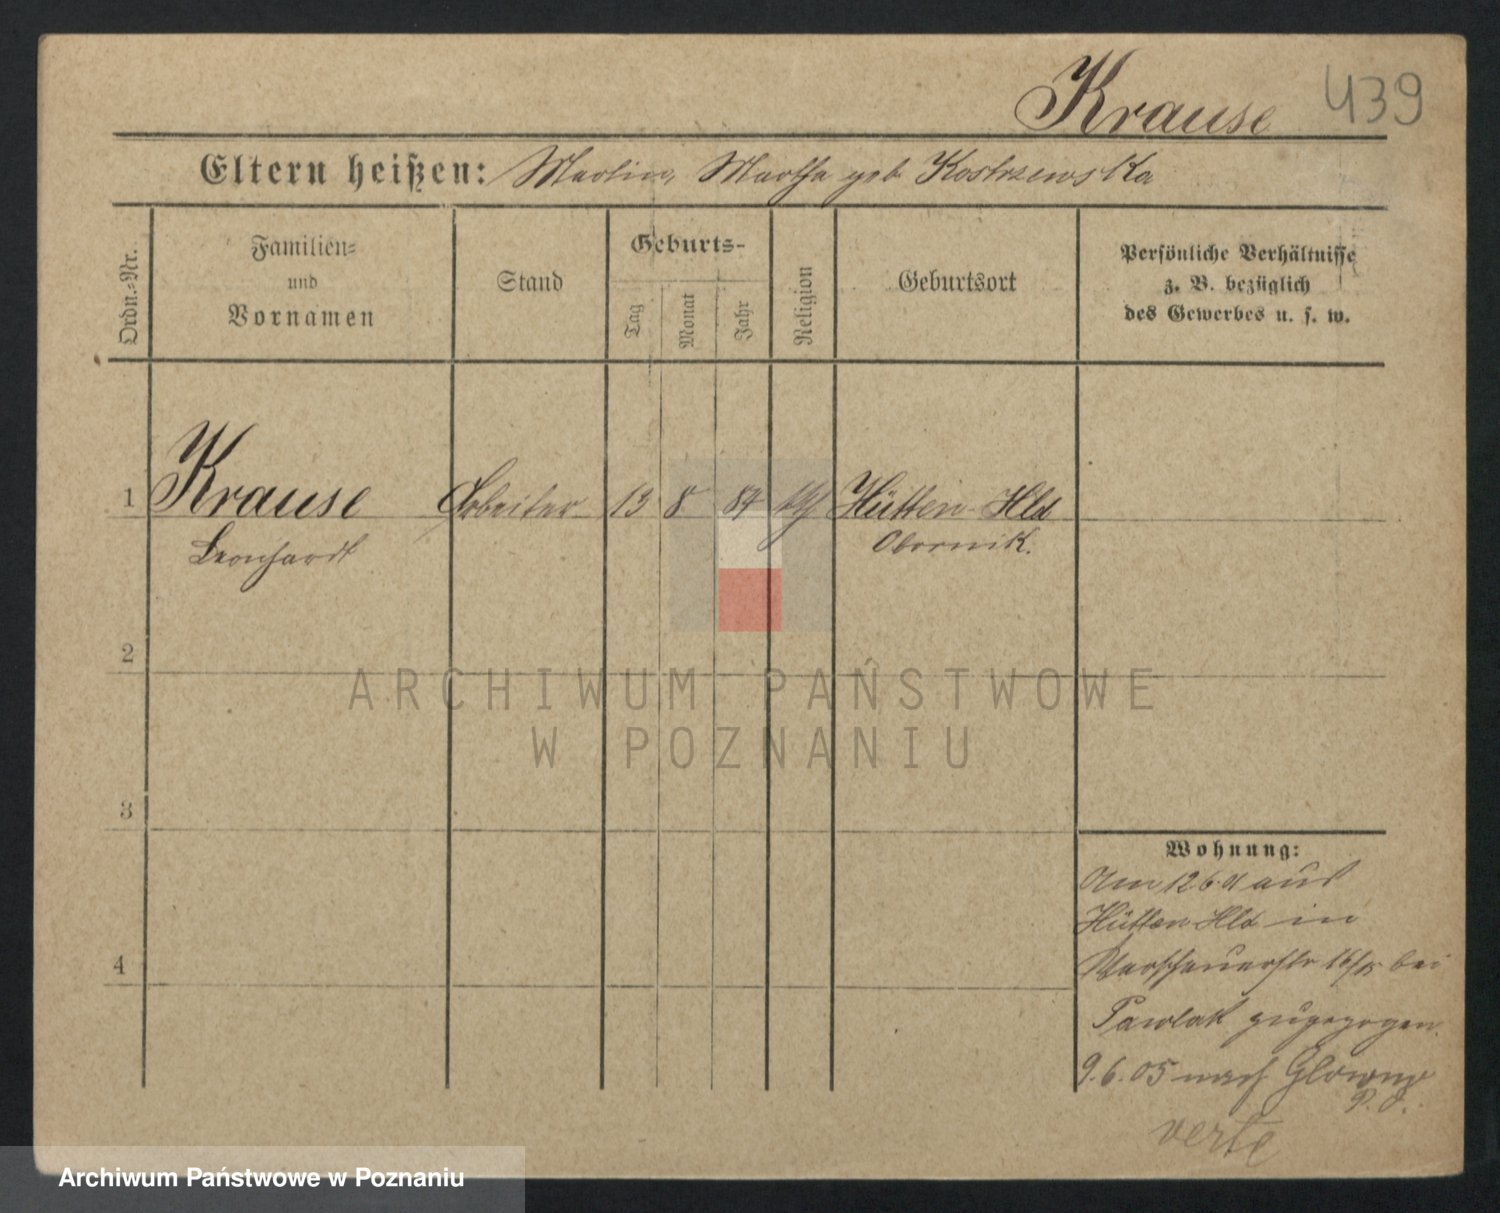 Krause 439
Eltern heißen: Martin, Martha geb. Kostrzewska
Ordn.-Nr.
Familien-
und
Vornamen
Stand
Geburts-
Tag
Monat
Jahr
Religion
Geburtsort
Persönliche Verhältnisse
z. B. bezüglich
des Gewerbes u. s. w.
1 Krause Arbeiter 13 8 84 Hütten-Hld
Leonhardt Obornik.
2
ARCHIWUM PAŃSTWOWE
W POZNANIU
3
Wohnung:
Am 12 6 aus
Hütten-Hld in
4 Warschauerstr bei
Pawlak zugezogen.
9.6.05 nach Glowno
P. O.
verte
Archiwum Państwowe w Poznaniu